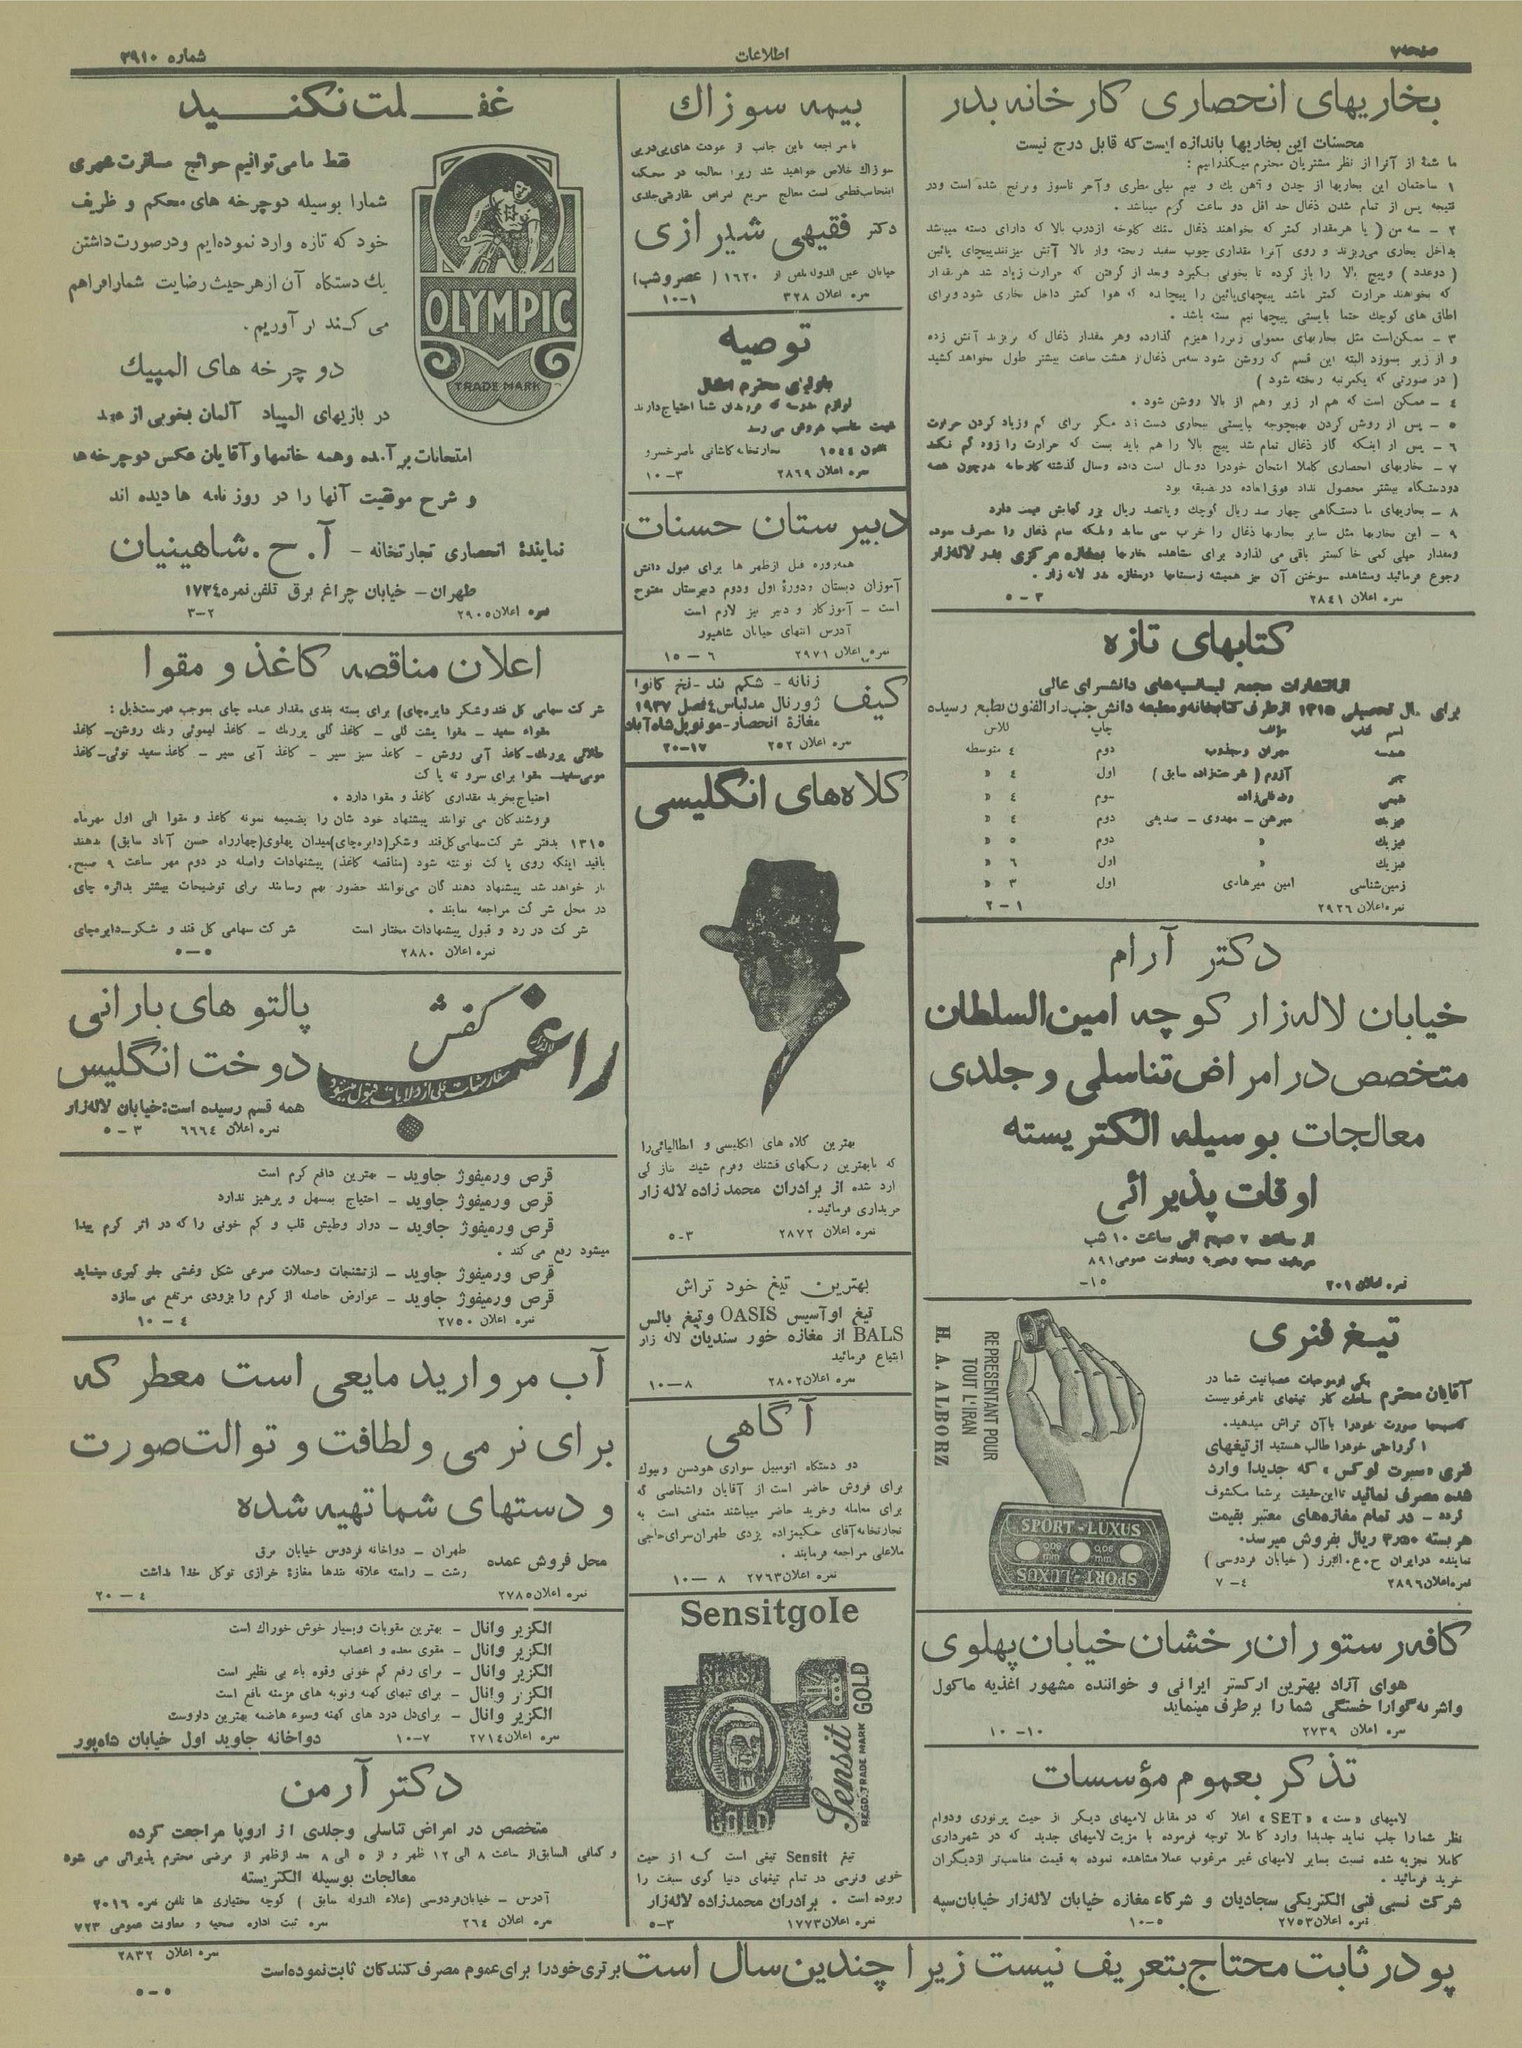 صفحه ۷
اطلاعات
شماره ۳۹۱۰
بخاریهای انحصاری کارخانه بدر
محسنات این بخاریها باندازه ایست که قابل درج نیست
ما شمهٔ از آنرا از نظر مشتریان محترم میگذرانیم :
۱ ساختمان این بخاریها از چدن و آهن یك و نیم میلی مطری وآجر ناسوز وبرنج شده است ودر
نتیجه پس از تمام شدن ذغال حد اقل دو ساعت گرم میباشد .
۲ – سه من ( یا هر مقدار کمتر که بخواهند ذغال سنك کلوخه ازدرب بالا که دارای دسته میباشد
بداخل بخاری میریزند و روی آنرا مقداری چوب سفید ریخته واز بالا آتش میزنند پیچای پائین
( دوعدد ) وپیچ بالا را باز کرده تا بخوبی بگیرد وبعد از گرفتن که حرارت زیاد شد هر مقدار
که بخواهند حرارت کمتر باشد پیچهای پائین را پیچانده که هوا کمتر داخل بخاری شود وبرای
اطاق های کوچك حتما بایستی پیچها نیم بسته باشد .
۳ – ممکن است مثل بخاریهای معمولی زیررا هیزم گذارده وهر مقدار ذغال که بریزند آتش زده
و از زیر بسوزد البته این قسم که روشن شود سه من ذغال از هشت ساعت بیشتر طول نخواهد کشید
( در صورتی که یکمرتبه ریخته شود )
٤ – ممکن است که هم از زیر وهم از بالا روشن شود .
٥ – پس از روشن کردن بهیچوجه بایستی ببخاری دست نزد مگر برای کم وزیاد کردن حرارت
٦ – پس از اینکه گاز ذغال تمام شد پیچ بالا را هم باید بست که حرارت را زود کم نکند
۷ – بخاریهای انحصاری کاملا امتحان خودرا دو سال است داده وسال گذشته کارخانه هرچون همه
دودستگاه بیشتر محصول نداد فوق العاده در مضیقه بود
۸ – بخاریهای ما دستگاهی چهار صد ریال کوچك وپانصد ریال بزرگهایش قیمت دارد
۹ – این بخاریها مثل سایر بخاریها ذغال را خرب نمی نماید وبلکه تمام ذغال را مصرف نموده
ومقدار خیلی کمی خاکستر باقی می گذارد برای مشاهده بخاریها بمغازه مرکزی بدر لاله‌زار
رجوع فرمائید ومشاهده سوختن آن نیز همیشه زمستانها درمغازه بدر لاله زار .
نمره اعلان ۲۸٤۱ ۳ – ٥
کتابهای تازه
از انتشارات مجمعه لیسانسیه‌های دانشسرای عالی
برای سال تحصیلی ۱۳۱٥ ازطرف کتابخانه ومطبعه دانش جنب دارالفنون بطبع رسیده
اسم کتاب مؤلف چاپ کلاس
هندسه مهران و مجذوب دوم ٤ متوسطه
جبر آزرم ( فرحت زاده سابق ) اول ٤ «
شیمی سوم ٤ «
فیزیك میرهن – مهدوی – صدیقی دوم ٤ «
فیزیك « دوم ٥ «
فیزیك « اول ٦ «
زمین شناسی امین میرهادی اول ۳ «
نمره اعلان ۲۹۲٦ ۱ – ۲
دکتر آرام
خیابان لاله‌زار کوچه امین السلطان
متخصص در امراض تناسلی و جلدی
معالجات بوسیله الکتریسته
اوقات پذیرائی
از ساعت ۷ صبح الی ساعت ۱۰ شب
نمره اعلان ۲۰۱ ۱۵–
تیغ فنری
آقایان محترم یکی ازموجبات عصبانیت شما در ساعات کار تیغهای نامرغوبیست
که‌صبحها صورت خودرا باآن تراش میدهید.
اگر راحتی خودرا طالب هستید از تیغهای
فنری «سپرت لوکس» که جدیدا وارد
شده مصرف نمائید تااین حقیقت برشما مکشوف
گردد – در تمام مغازه‌های معتبر بقیمت
هر بسته ۳٫٥۰ ریال بفروش میرسد.
نماینده درایران ح.ع.البرز ( خیابان فردوسی )
نمره اعلان ۲۸۹٦ ٤ – ۷
REPRESENTANT POUR
TOUT L'IRAN
H. A. ALBORZ
SPORT-LUXUS
0,06 mm 0,06 mm
SPORT-LUXUS
کافه رستوران رخشان خیابان پهلوی
هوای آزاد بهترین ارکستر ایرانی و خواننده مشهور اغذیه ماکول
واشربه گوارا خستگی شما را برطرف مینماید
نمره اعلان ۲۷۳۹ ۱۰ – ۱۰
تذکر بعموم مؤسسات
لامپهای «ست» «SET» اعلا که در مقابل لامپهای دیگر از حیث پرنوری ودوام
نظر شمارا جلب نماید جدیدا وارد کاملا توجه فرموده با مزیت لامپهای جدید که در شهرداری
کاملا تجزیه شده نسبت بسایر لامپهای غیر مرغوب عملا مشاهده نموده به قیمت مناسب‌تر ازدیگران
خرید فرمائید .
شرکت نسبی فنی الکتریکی سجادیان و شرکاء مغازه خیابان لاله‌زار خیابان سپه
نمره اعلان ۲۷٥۳ ٥ – ۱۰
بیمه سوزاك
با مراجعه باین جانب از عودت های پی درپی
سوزاك خلاص خواهید شد زیرا معالجه در محکمه
اینجانب قطعی است معالج سریع امراض مقاربتی جلدی
دکتر فقیهی شیرازی
خیابان عین الدوله تلفن از ۱٦۲۰ ( عصر وشب)
نمره اعلان ۳۲۸ ۱ – ۱۰
توصیه
باولیای محترم اطفال
لوازم مدرسه که فرزندان شما احتیاج دارند
بقیمت مناسب بفروش می رسد
تلفون ۱٥٤٤ تجارتخانه کاشانی ناصر خسرو
نمره اعلان ۲۸٦۹ ۳ – ۱۰
دبیرستان حسنات
همه‌روزه قبل ازظهر ها برای قبول دانش
آموزان دبستان ودورهٔ اول ودوم دبیرستان مفتوح
است – آموزگار و دبیر نیز لازم است
آدرس انتهای خیابان شاهپور
نمره اعلان ۲۹۷۱ ٦ – ۱٥
کیف
زنانه – شکم بند – نخ کانوا
ژورنال مد لباس ٤ فصل ۱۹۳۷
مغازهٔ انحصار – مونوپل شاه‌آباد
نمره اعلان ۲٥۲ ۱۷ – ۲۰
کلاه های انگلیسی
بهترین کلاه های انگلیسی و ایطالیائی را
که بابهترین رنگهای قشنك وفرم شیك بتازگی
وارد شده از برادران محمد زاده لاله زار
خریداری فرمائید .
نمره اعلان ۲۸۷۲ ۳ – ٥
بهترین تیغ خود تراش
تیغ اوآسیس OASIS وتیغ بالس
BALS از مغازه خور سندیان لاله زار
ابتیاع فرمائید
نمره اعلان ۲۸۰۲ ۸ – ۱۰
آگاهی
دو دستگاه اتومبیل سواری هودسن وبیوك
برای فروش حاضر است از آقایان واشخاصی که
برای معامله وخرید حاضر میباشند متمنی است به
تجارتخانه آقای حکیم‌زاده یزدی طهران سرای حاجی
ملاعلی مراجعه فرمایند .
نمره اعلان ۲۷٦۳ ۸ – ۱۰
Sensitgole
SENSIT
GOLD
Sensit
GOLD
REGD. TRADE MARK
تیغ Sensit تیغی است که از حیث
خوبی ونرمی در تمام تیغهای دنیا گوی سبقت را
ربوده است . برادران محمدزاده لاله‌زار
نمره اعلان ۱۷۷۳ ۳ – ٥
غفلت نکنید
فقط ما می‌توانیم حوائج مسافرت شهری
شمارا بوسیله دوچرخه های محکم و ظریف
خود که تازه وارد نموده‌ایم ودر صورت داشتن
یك دستگاه آن از هر حیث رضایت شمارا فراهم
می کنند آوریم .
دوچرخه های المپیك
در بازیهای المپیاد آلمان بخوبی از عهده
امتحانات برآمده وهمه خانمها وآقایان عکس دوچرخه‌ها
و شرح موفقیت آنها را در روزنامه ها دیده اند
نمایندهٔ انحصاری تجارتخانه – آ.ح. شاهینیان
طهران – خیابان چراغ برق تلفن نمره ۱۷۳٤
نمره اعلان ۲۹۰٥ ۲ – ۳
OLYMPIC
TRADE MARK
اعلان مناقصه کاغذ و مقوا
شرکت سهامی کل قند وشکر دایره چای) برای بسته بندی مقدار عمده چای بموجب فهرست ذیل :
مقواء سفید – مقوا پشت گلی – کاغذ گلی پررنك – کاغذ لیموئی رنك روشن – کاغذ
طلائی پررنك – کاغذ آبی روشن – کاغذ سبز سیر – کاغذ آبی سیر – کاغذ سفید توئی – کاغذ
مومی سفید – مقوا برای سر و ته پاکت
احتیاج بخرید مقداری کاغذ و مقوا دارد .
فروشندگان می توانند پیشنهاد خود شان را بضمیمه نمونه کاغذ و مقوا الی اول مهرماه
۱۳۱٥ بدفتر شرکت سهامی کل قند وشکر(دایره چای)میدان پهلوی(چهارراه حسن آباد سابق) بدهند
باقید اینکه روی پاکت نوشته شود (مناقصه کاغذ) پیشنهادات واصله در دوم مهر ساعت ۹ صبح .
باز خواهد شد پیشنهاد دهند گان می‌توانند حضور بهم رسانند برای توضیحات بیشتر بدائره چای
در محل شرکت مراجعه نمایند .
شرکت در رد و قبول پیشنهادات مختار است شرکت سهامی کل قند و شکر – دایره چای
نمره اعلان ۲۸۸۰ ٥ – ٥
کفش
راغب
لاله‌زار
سفارشات پستی از ولایات قبول میشود
پالتو های بارانی
دوخت انگلیس
همه قسم رسیده است: خیابان لاله‌زار
نمره اعلان ٦٦٦٤ ۳ – ٥
قرص ورمیفوژ جاوید – بهترین دافع کرم است
قرص ورمیفوژ جاوید – احتیاج بمسهل و پرهیز ندارد
قرص ورمیفوژ جاوید – دوار وطپش قلب و کم خونی را که در اثر کرم پیدا
میشود رفع می کند .
قرص ورمیفوژ جاوید – ازتشنجات وحملات صرعی شکل وغشی جلو گیری مینماید
قرص ورمیفوژ جاوید – عوارض حاصله از کرم را بزودی مرتفع می سازد
نمره اعلان ۲۷٥۰ ٤ – ۱۰
آب مروارید مایعی است معطر که
برای نرمی ولطافت و توالت صورت
و دستهای شما تهیه شده
محل فروش عمده
طهران – دواخانه فردوس خیابان برق
رشت – راسته علاقه بندها مغازهٔ خرازی توکل خدا
نمره اعلان ۲۷۸٥ ٤ – ۲۰
الکزیر وانال – بهترین مقویات وبسیار خوش خوراك است
الکزیر وانال – مقوی معده و اعصاب
الکزیر وانال – برای رفع کم خونی وقوه باء بی نظیر است
الکزیر وانال – برای تبهای کهنه ونوبه های مزمنه نافع است
الکزیر وانال – برای دل درد های کهنه وسوء هاضمه بهترین داروست
نمره اعلان ۲۷۱٤ ۷ – ۱۰ دواخانه جاوید اول خیابان شاه‌پور
دکتر آرمن
متخصص در امراض تناسلی وجلدی از اروپا مراجعت کرده
و کمافی السابق از ساعت ۸ الی ۱۲ ظهر و از ٥ الی ۸ بعد ازظهر از مرضی محترم پذیرائی می شود
معالجات بوسیله الکتریسته
آدرس – خیابان فردوسی (علاء الدوله سابق ) کوچه بختیاری ها تلفن نمره ۲۰۱٦
نمره اعلان ۲٦٤ نمره ثبت اداره صحیه و معاونت عمومی ۷۲۳
پودر ثابت محتاج بتعریف نیست زیرا چندین سال است برتری خودرا برای عموم مصرف کنندکان ثابت نموده است
نمره اعلان ۲۸۳۲
٥ – ٥